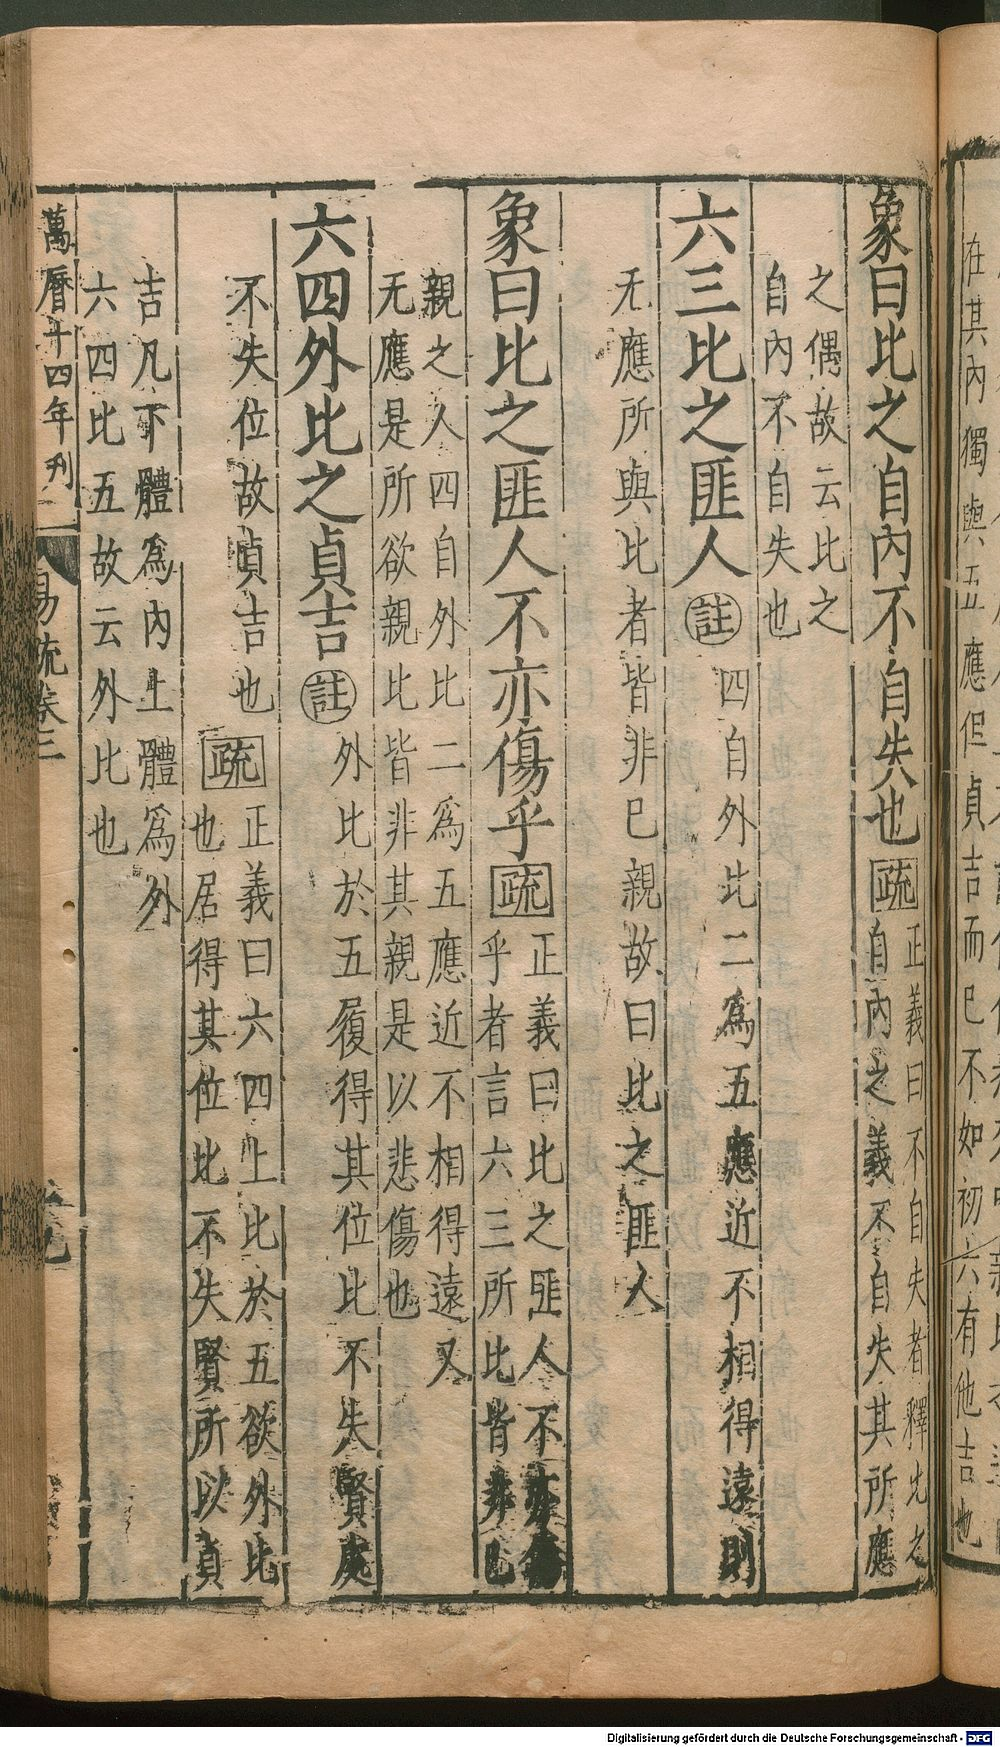 象曰比之自內不自失也疏正義曰不自失者釋比之
自內之義不自失其所應
之偶故云比之
自內不自失也
六三比之匪人註四自外比二爲五應近不相得遠則
无應所與比者皆非巳親故曰比之匪人
象曰比之匪人不亦傷乎疏正義曰比之匪人不亦傷
乎者言六三所比皆非巳
親之人四自外比二爲五應近不相得遠又
无應是所欲親比皆非其親是以悲傷也
六四外比之貞吉註外比於五履得其位比不失賢處
不失位故貞吉也疏正義曰六四上比於五欲外比
也居得其位比不失賢所以貞
吉凡下體爲內上體爲外
六四比五故云外比也
萬曆十四年刊
易疏卷二
九
在其內獨與五應但貞吉而巳不如初六有他吉也
Digitalisierung gefördert durch die Deutsche Forschungsgemeinschaft - DFG